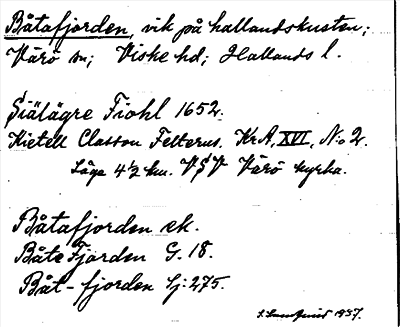 Båtafjorden, vik på hallandskusten;
Värö sn; Viske hd; Hallands l.
Siälägre Fiohl 1652.
Kietell Classon Felterus. KrA, XVI, N:o 2.
Läge 4 1/2 km. VSV Värö kyrka.
Båtafjorden ek.
Båte Fjorden G. 18.
Båt-fjorden Sj: 275.
1937.